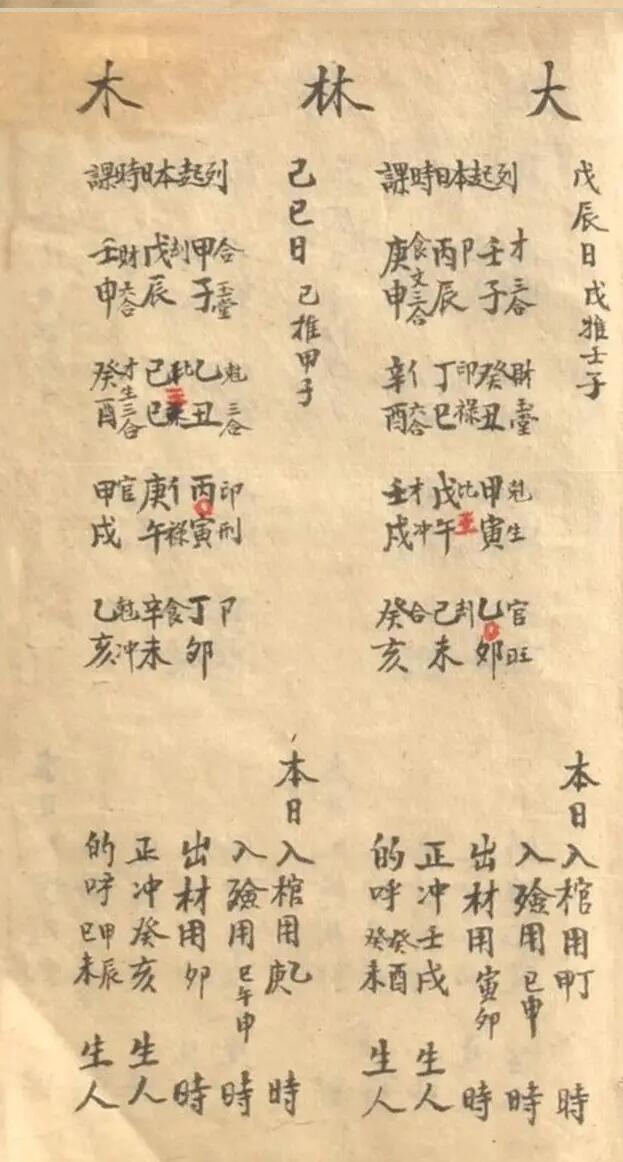 大林木
戊辰日 戊推壬子
列起本日時課
壬子 才 三合
丙辰 卩
庚申 食 文 三合
癸丑 財 玉堂
丁巳 印 祿
辛酉 亻 六合
甲寅 尅 生
戊午 比 王
壬戌 才 冲
乙卯 官 旺
己未 刦
癸亥 合
本日入棺用甲丁時
入殮用巳申時
出材用寅卯時
正冲壬戌生人
的呼癸酉癸未生人
己巳日 己推甲子
列起本日時課
甲子 合 玉堂
戊辰 刦
壬申 財 六合
乙丑 尅 三合
己巳 比
癸酉 才 生 三合
丙寅 印 刑
庚午 亻 祿
甲戌 官
丁卯 卩
辛未 食
乙亥 尅 冲
本日入棺用乙庚時
入殮用巳午申時
出材用卯時
正冲癸亥生人
的呼甲辰巳未生人